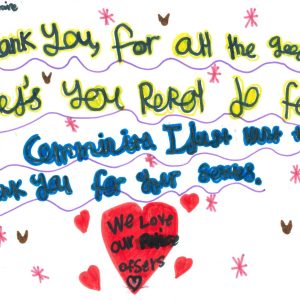 hank you, for all the goo
et's you Perot do fo
Comminira I Just want t
ank you for your serves.
We Love
our Police
ofsers